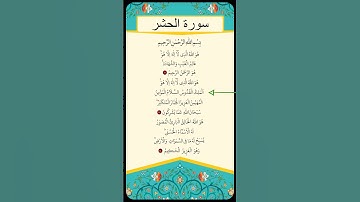 سورة الحشر
بِسْمِ اللهِ الرَّحْمٰنِ الرَّحِيْمِ
هُوَ اللهُ الَّذِى لَا إِلٰهَ إِلَّا هُوَ
عَالِمُ الْغَيْبِ وَالشَّهَادَةِ
هُوَ الرَّحْمٰنُ الرَّحِيْمُ
هُوَ اللهُ الَّذِى لَا إِلٰهَ إِلَّا هُوَ
اَلْمَلِكُ الْقُدُّوْسُ السَّلَامُ الْمُؤْمِنُ
الْمُهَيْمِنُ الْعَزِيْزُ الْجَبَّارُ الْمُتَكَبِّرُ
سُبْحَانَ اللهِ عَمَّا يُشْرِكُوْنَ
هُوَ اللهُ الْخَالِقُ الْبَارِئُ الْمُصَوِّرُ
لَهُ الْأَسْمَاءُ الْحُسْنٰى
يُسَبِّحُ لَهُ مَا فِى السَّمٰوَاتِ وَالْأَرْضِ
وَهُوَ الْعَزِيْزُ الْحَكِيْمُ